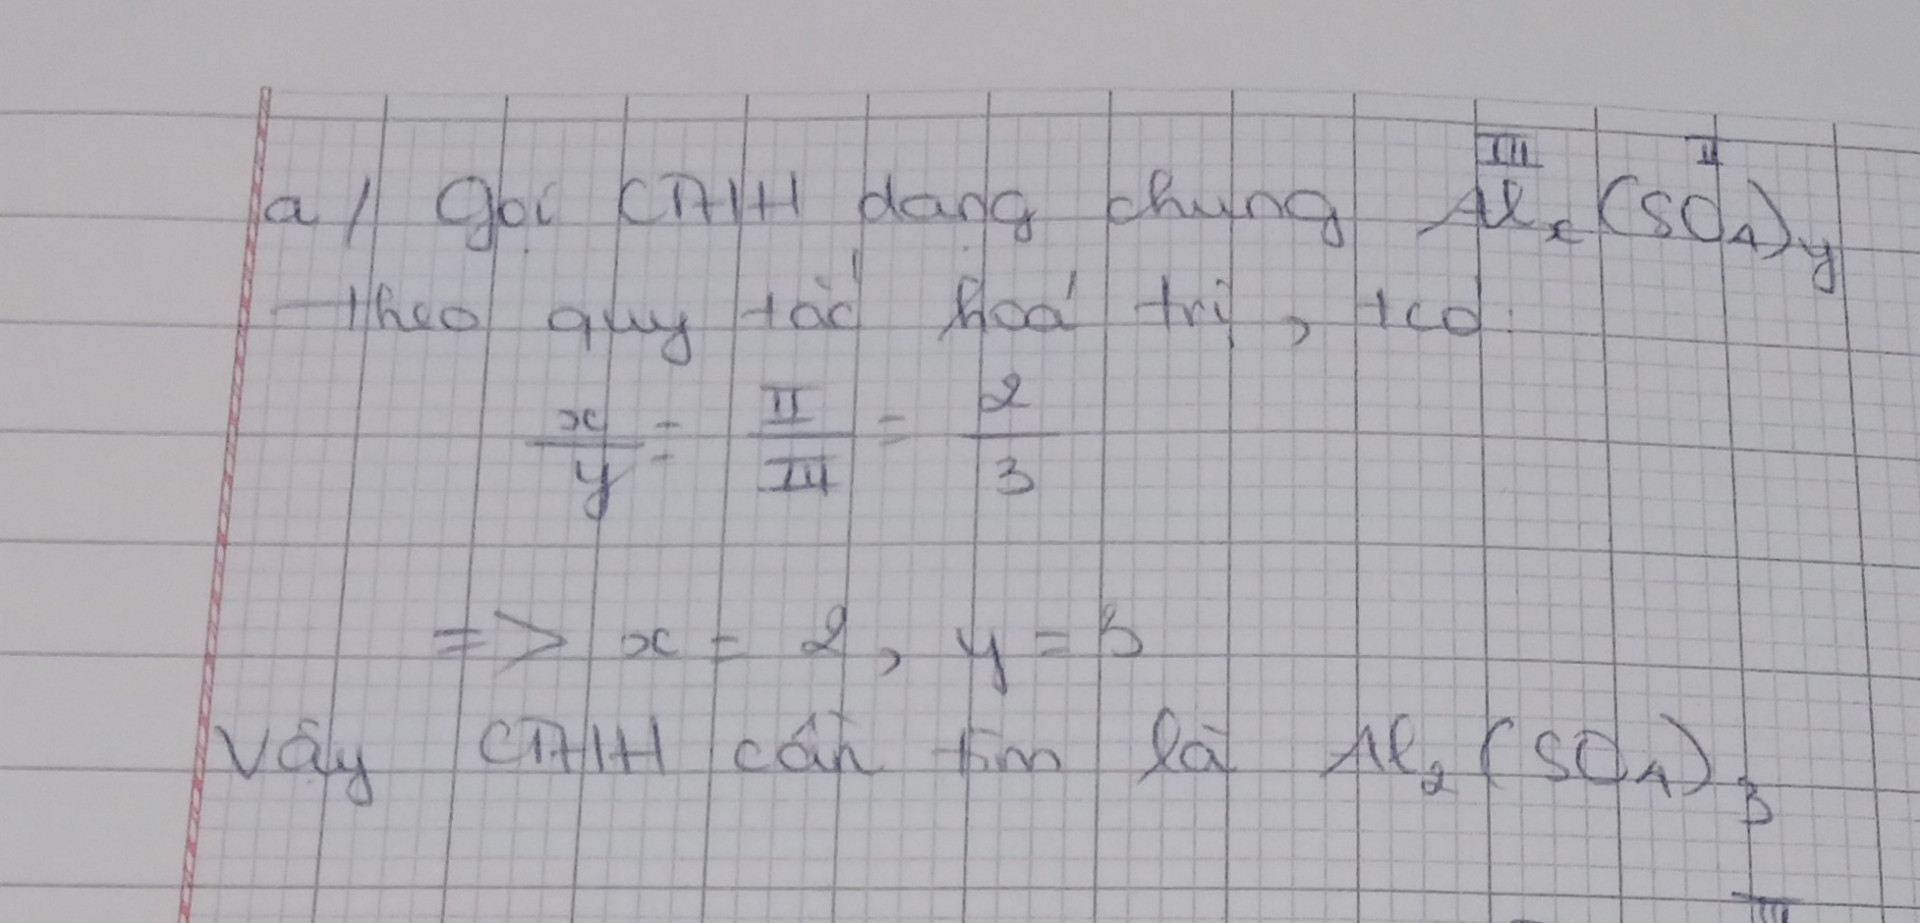 III II
a / Gọi CTHH dạng chung Alx(SO4)y
Theo quy tắc hoá trị, tcó:
x/y = II/III = 2/3
=> x = 2, y = 3
Vậy CTHH cần tìm là Al2(SO4)3
III